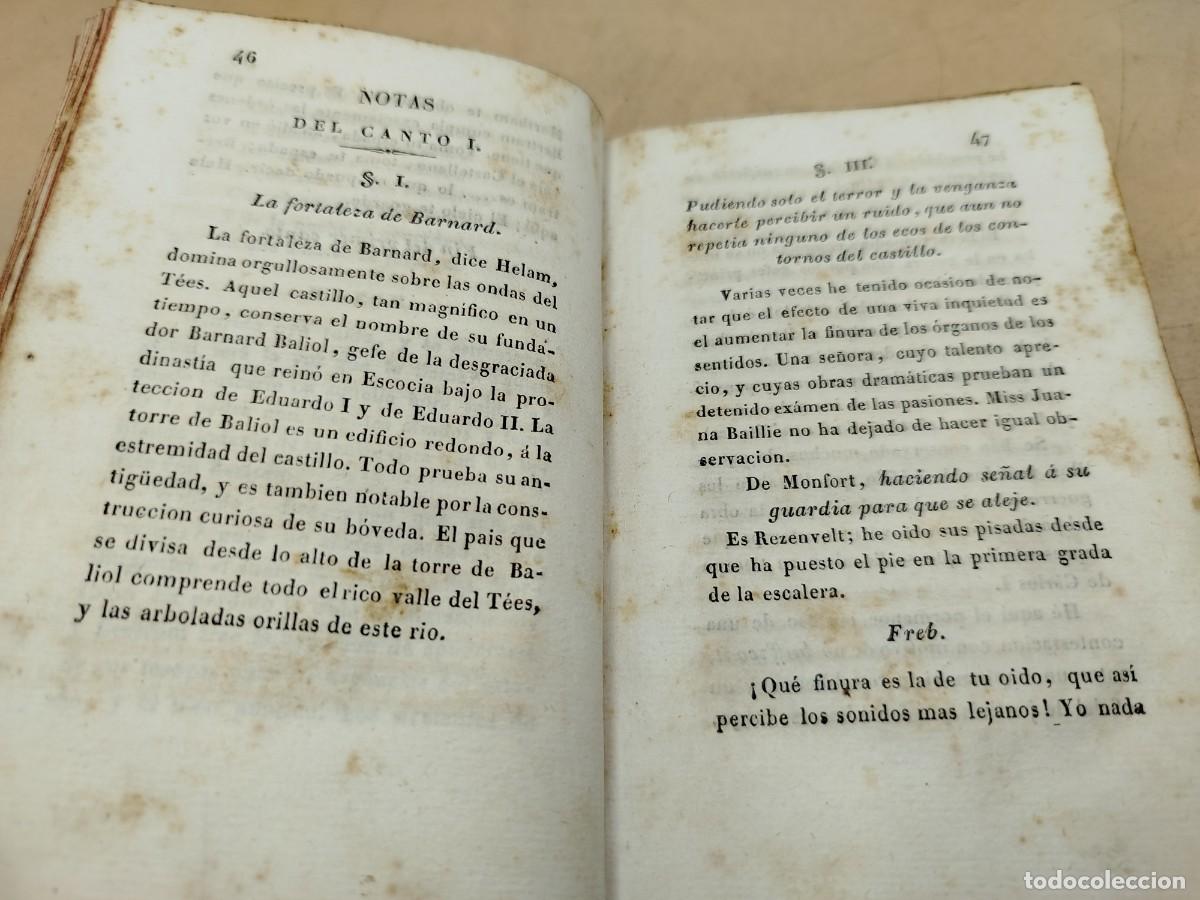 46
NOTAS
DEL CANTO I.
§. I.
La fortaleza de Barnard.
La fortaleza de Barnard, dice Helam,
domina orgullosamente sobre las ondas del
Tées. Aquel castillo, tan magnífico en un
tiempo, conserva el nombre de su funda-
dor Barnard Baliol, gefe de la desgraciada
dinastía que reinó en Escocia bajo la pro-
teccion de Eduardo I y de Eduardo II. La
torre de Baliol es un edificio redondo, á la
estremidad del castillo. Todo prueba su an-
tigüedad, y es tambien notable por la cons-
truccion curiosa de su bóveda. El pais que
se divisa desde lo alto de la torre de Ba-
liol comprende todo el rico valle del Tées,
y las arboladas orillas de este rio.
47
§. III.
Pudiendo solo el terror y la venganza
hacerle percibir un ruido, que aun no
repetia ninguno de los ecos de los con-
tornos del castillo.
Varias veces he tenido ocasion de no-
tar que el efecto de una viva inquietud es
el aumentar la finura de los órganos de los
sentidos. Una señora, cuyo talento apre-
cio, y cuyas obras dramáticas prueban un
detenido exámen de las pasiones. Miss Jua-
na Baillie no ha dejado de hacer igual ob-
servacion.
De Monfort, haciendo señal á su
guardia para que se aleje.
Es Rezenvelt; he oido sus pisadas desde
que ha puesto el pie en la primera grada
de la escalera.
Freb.
¡Qué finura es la de tu oido, que así
percibe los sonidos mas lejanos! Yo nada
todocoleccion